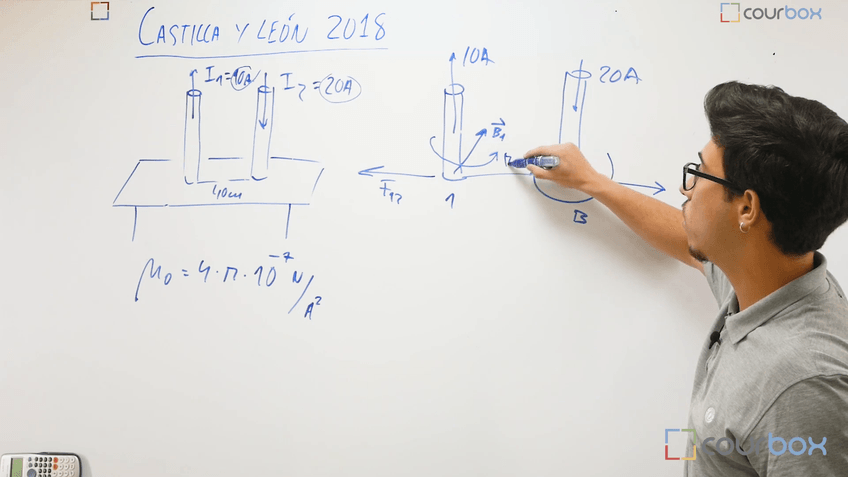 courbox
CASTILLA Y LEÓN 2018
I₁=10A
I₂=20A
40cm
μ₀ = 4·π·10⁻⁷ N/A²
10A
20A
B⃗₁
F⃗₁₂
1
B
courbox